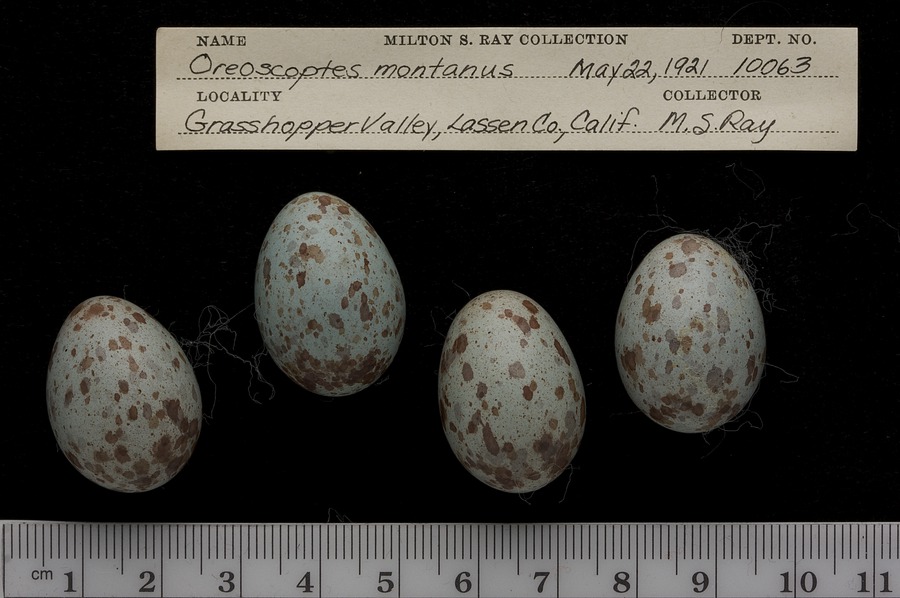 NAME MILTON S. RAY COLLECTION DEPT. NO.
Oreoscoptes montanus May 22, 1921 10063
LOCALITY COLLECTOR
Grasshopper Valley, Lassen Co., Calif. M. S. Ray
cm 1 2 3 4 5 6 7 8 9 10 11